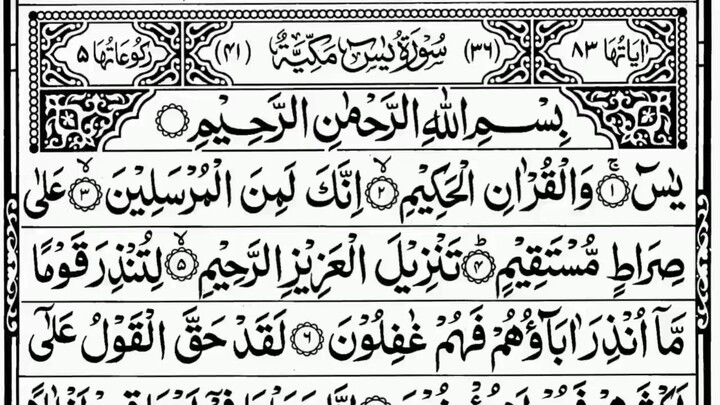 اٰیَاتُهَا ۸۳ (۳۶) سُوْرَةُ یٰسٓ مَكِّیَّةٌ (۴۱) رُكُوْعَاتُهَا ۵
بِسْمِ اللهِ الرَّحْمٰنِ الرَّحِیْمِ
یٰسٓ ۚ۝۱ وَالْقُرْاٰنِ الْحَكِیْمِ ۙ۝۲ اِنَّكَ لَمِنَ الْمُرْسَلِیْنَ ۙ۝۳ عَلٰی
صِرَاطٍ مُّسْتَقِیْمٍ ؕ۝۴ تَنْزِیْلَ الْعَزِیْزِ الرَّحِیْمِ ۙ۝۵ لِتُنْذِرَ قَوْمًا
مَّاۤ اُنْذِرَ اٰبَآؤُهُمْ فَهُمْ غٰفِلُوْنَ ۝۶ لَقَدْ حَقَّ الْقَوْلُ عَلٰۤی